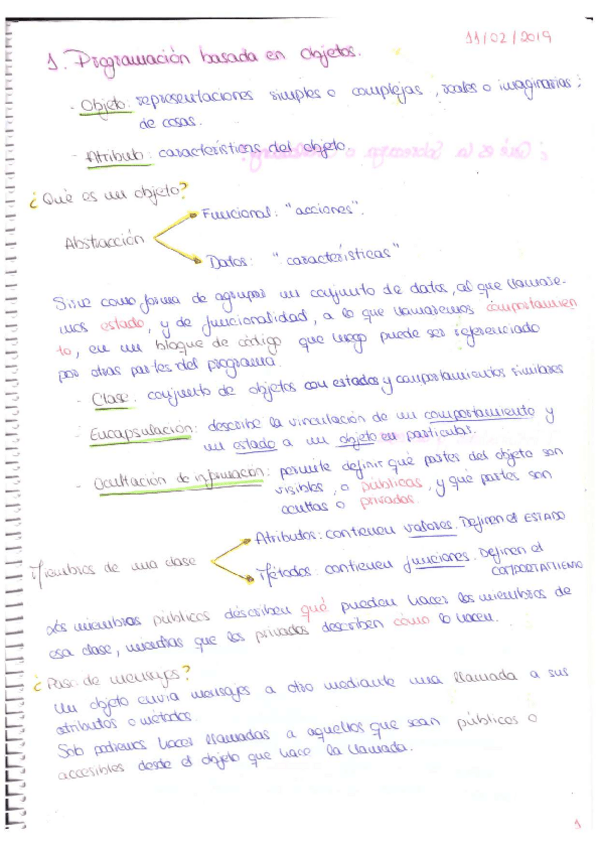 11/02/2019
1. Programación basada en objetos.
- Objeto: representaciones simples o complejas, reales o imaginarias;
de cosas.
- Atributo: características del objeto.
¿Qué es un objeto?
Funcional: "acciones".
Abstracción
Datos: "características"
Sirve como forma de agrupar un conjunto de datos, al que llamare-
mos estado, y de funcionalidad, a lo que llamaremos comportamien
to, en un bloque de código que luego puede ser referenciado
por otras partes del programa.
- Clase: conjunto de objetos con estados y comportamientos similares
- Encapsulación: describe la vinculación de un comportamiento y
un estado a un objeto en particular.
- Ocultación de información: permite definir qué partes del objeto son
visibles, o públicas, y qué partes son
ocultas o privadas.
Atributos: contienen valores. Definen el ESTADO
Miembros de una clase
Métodos: contienen funciones. Definen el
COMPORTAMIENTO
Los miembros públicos describen qué pueden hacer los miembros de
esa clase, mientras que los privados describen cómo lo hacen.
¿Paso de mensajes?
Un objeto envia mensajes a otro mediante una llamada a sus
atributos o métodos.
Solo podremos hacer llamadas a aquellos que sean públicos o
accesibles desde el objeto que hace la llamada.
1